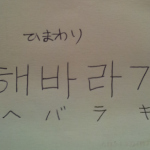 ひまわり
해바라기
ヘバラキ